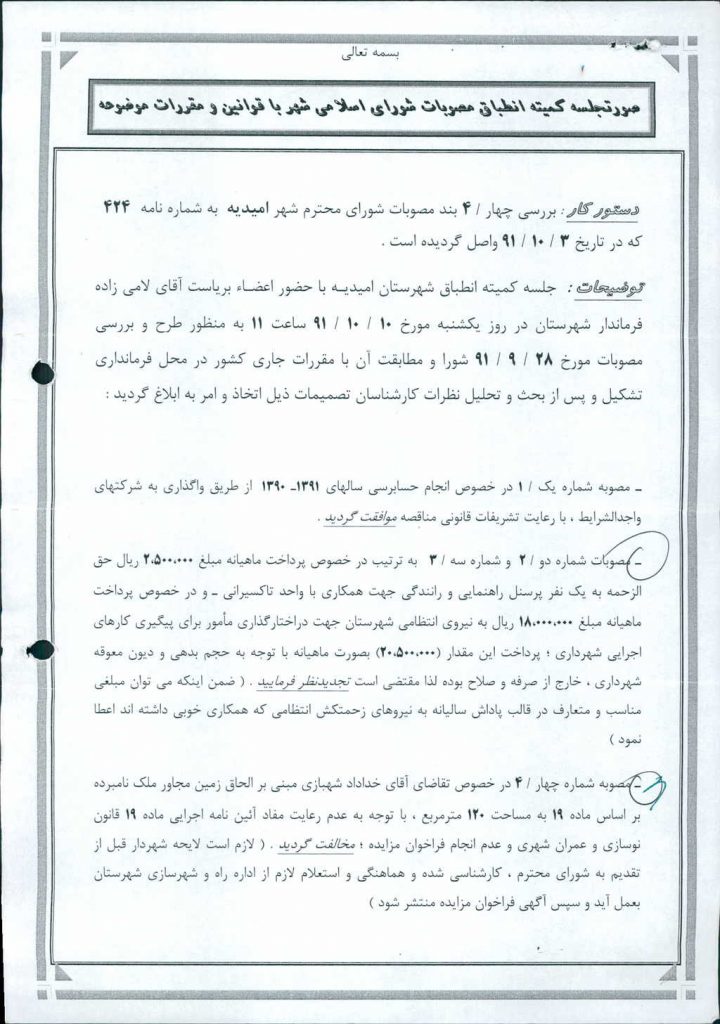 بسمه تعالی
صورتجلسه کمیته انطباق مصوبات شورای اسلامی شهر با قوانین و مقررات موضوعه
دستور کار : بررسی چهار / ۴ بند مصوبات شورای محترم شهر امیدیه به شماره نامه ۴۲۴
که در تاریخ ۳ / ۱۰ / ۹۱ واصل گردیده است .
توضیحات : جلسه کمیته انطباق شهرستان امیدیـه با حضور اعضـاء بریاست آقای لامی زاده
فرماندار شهرستان در روز یکشنبه مورخ ۱۰ / ۱۰ / ۹۱ ساعت ۱۱ به منظور طرح و بررسی
مصوبات مورخ ۲۸ / ۹ / ۹۱ شورا و مطابقت آن با مقررات جاری کشور در محل فرمانداری
تشکیل و پس از بحث و تحلیل نظرات کارشناسان تصمیمات ذیل اتخاذ و امر به ابلاغ گردید :
ـ مصوبه شماره یک / ۱ در خصوص انجام حسابرسی سالهای ۱۳۹۱ـ ۱۳۹۰ از طریق واگذاری به شرکتهای
واجدالشرایط ، با رعایت تشریفات قانونی مناقصه موافقت گردید .
ـ مصوبات شماره دو / ۲ و شماره سه / ۳ به ترتیب در خصوص پرداخت ماهیانه مبلغ ۲،۵۰۰،۰۰۰ ریال حق
الزحمه به یک نفر پرسنل راهنمایی و رانندگی جهت همکاری با واحد تاکسیرانی ـ و در خصوص پرداخت
ماهیانه مبلغ ۱۸،۰۰۰،۰۰۰ ریال به نیروی انتظامی شهرستان جهت دراختارگذاری مأمور برای پیگیری کارهای
اجرایی شهرداری ؛ پرداخت این مقدار (۲۰،۵۰۰،۰۰۰) بصورت ماهیانه با توجه به حجم بدهی و دیون معوقه
شهرداری ، خارج از صرفه و صلاح بوده لذا مقتضی است تجدیدنظر فرمایید . ( ضمن اینکه می توان مبلغی
مناسب و متعارف در قالب پاداش سالیانه به نیروهای زحمتکش انتظامی که همکاری خوبی داشته اند اعطا
نمود )
ـ مصوبه شماره چهار / ۴ در خصوص تقاضای آقای خداداد شهبازی مبنی بر الحاق زمین مجاور ملک نامبرده
بر اساس ماده ۱۹ به مساحت ۱۲۰ مترمربع ، با توجه به عدم رعایت مفاد آئین نامه اجرایی ماده ۱۹ قانون
نوسازی و عمران شهری و عدم انجام فراخوان مزایده ؛ مخالفت گردید . ( لازم است لایحه شهردار قبل از
تقدیم به شورای محترم ، کارشناسی شده و هماهنگی و استعلام لازم از اداره راه و شهرسازی شهرستان
بعمل آید و سپس آگهی فراخوان مزایده منتشر شود )